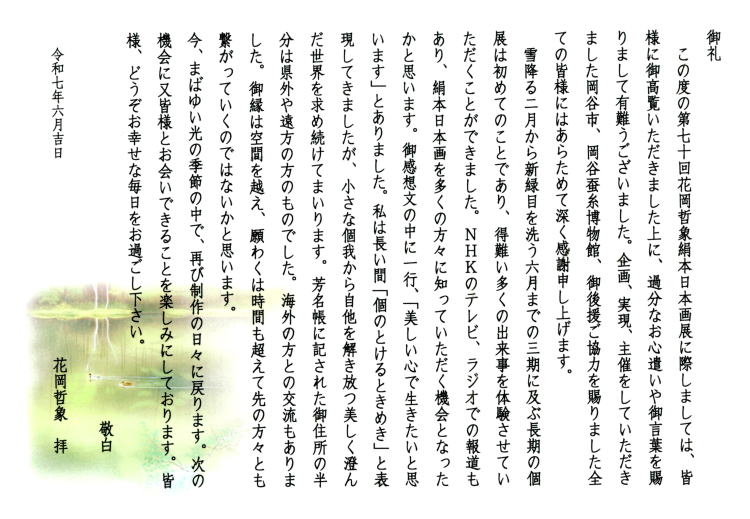 御礼
この度の第七十回花岡哲象絹本日本画展に際しましては、皆
様に御高覧いただきました上に、過分なお心遣いや御言葉を賜
りまして有難うございました。企画、実現、主催をしていただき
ました岡谷市、岡谷蚕糸博物館、御後援ご協力を賜りました全
ての皆様にはあらためて深く感謝申し上げます。
雪降る二月から新緑目を洗う六月までの三期に及ぶ長期の個
展は初めてのことであり、得難い多くの出来事を体験させてい
ただくことができました。NHKのテレビ、ラジオでの報道も
あり、絹本日本画を多くの方々に知っていただく機会となった
かと思います。御感想文の中に一行、「美しい心で生きたいと思
います」とありました。私は長い間「個のとけるときめき」と表
現してきましたが、小さな個我から自他を解き放つ美しく澄ん
だ世界を求め続けてまいります。芳名帳に記された御住所の半
分は県外や遠方の方のものでした。海外の方との交流もありま
した。御縁は空間を越え、願わくは時間も超えて先の方々とも
繋がっていくのではないかと思います。
今、まばゆい光の季節の中で、再び制作の日々に戻ります。次の
機会に又皆様とお会いできることを楽しみにしております。皆
様、どうぞお幸せな毎日をお過ごし下さい。
敬白
令和七年六月吉日
花岡哲象　拝